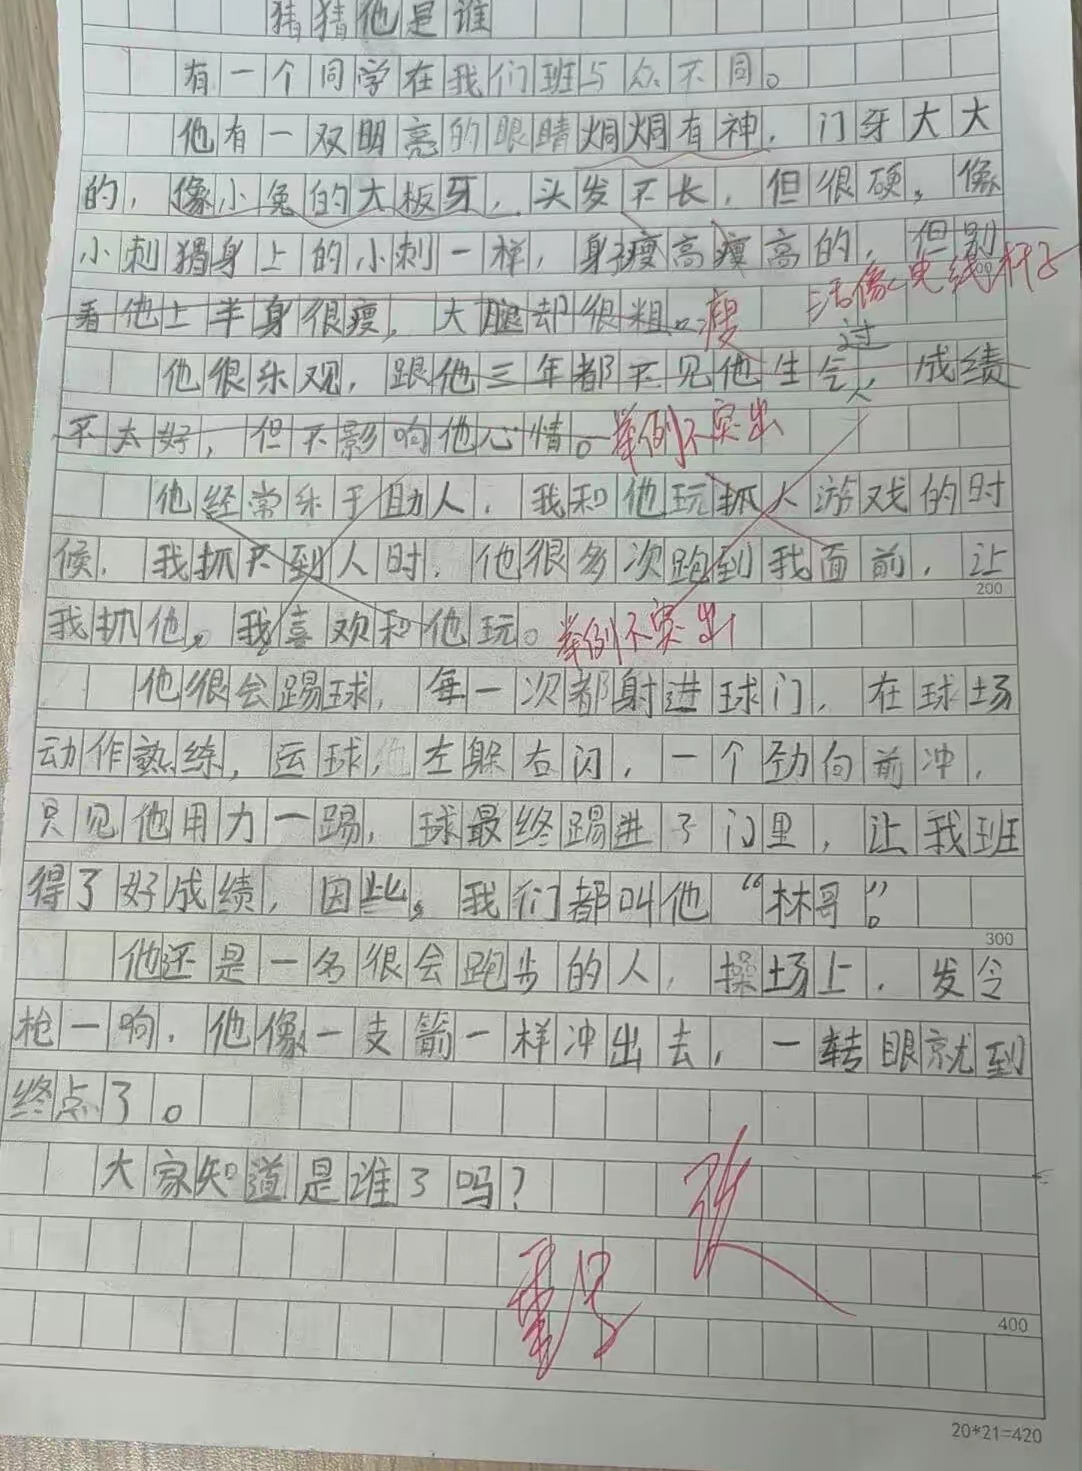 猜猜他是谁
有一个同学在我们班与众不同。
他有一双明亮的眼睛炯炯有神，门牙大大
的，像小兔的大板牙，头发不长，但很硬，像
小刺猬身上的小刺一样，身子瘦高瘦高的，但别
活像电线杆子
看他上半身很瘦，大腿却很粗。瘦
过
他很乐观，跟他三年都不见他生气，成绩
不太好，但不影响他心情。举例不突出
他经常乐于助人，我和他玩抓人游戏的时
候，我抓不到人时，他很多次跑到我面前，让
200
我抓他，我喜欢和他玩。举例不突出
他很会踢球，每一次都射进球门，在球场
动作熟练，运球，他左躲右闪，一个劲向前冲，
只见他用力一踢，球最终踢进了门里，让我班
得了好成绩，因此，我们都叫他“林哥”。
300
他还是一名很会跑步的人，操场上，发令
枪一响，他像一支箭一样冲出去，一转眼就到
终点了。
大家知道是谁了吗？
改
重写
400
20*21=420